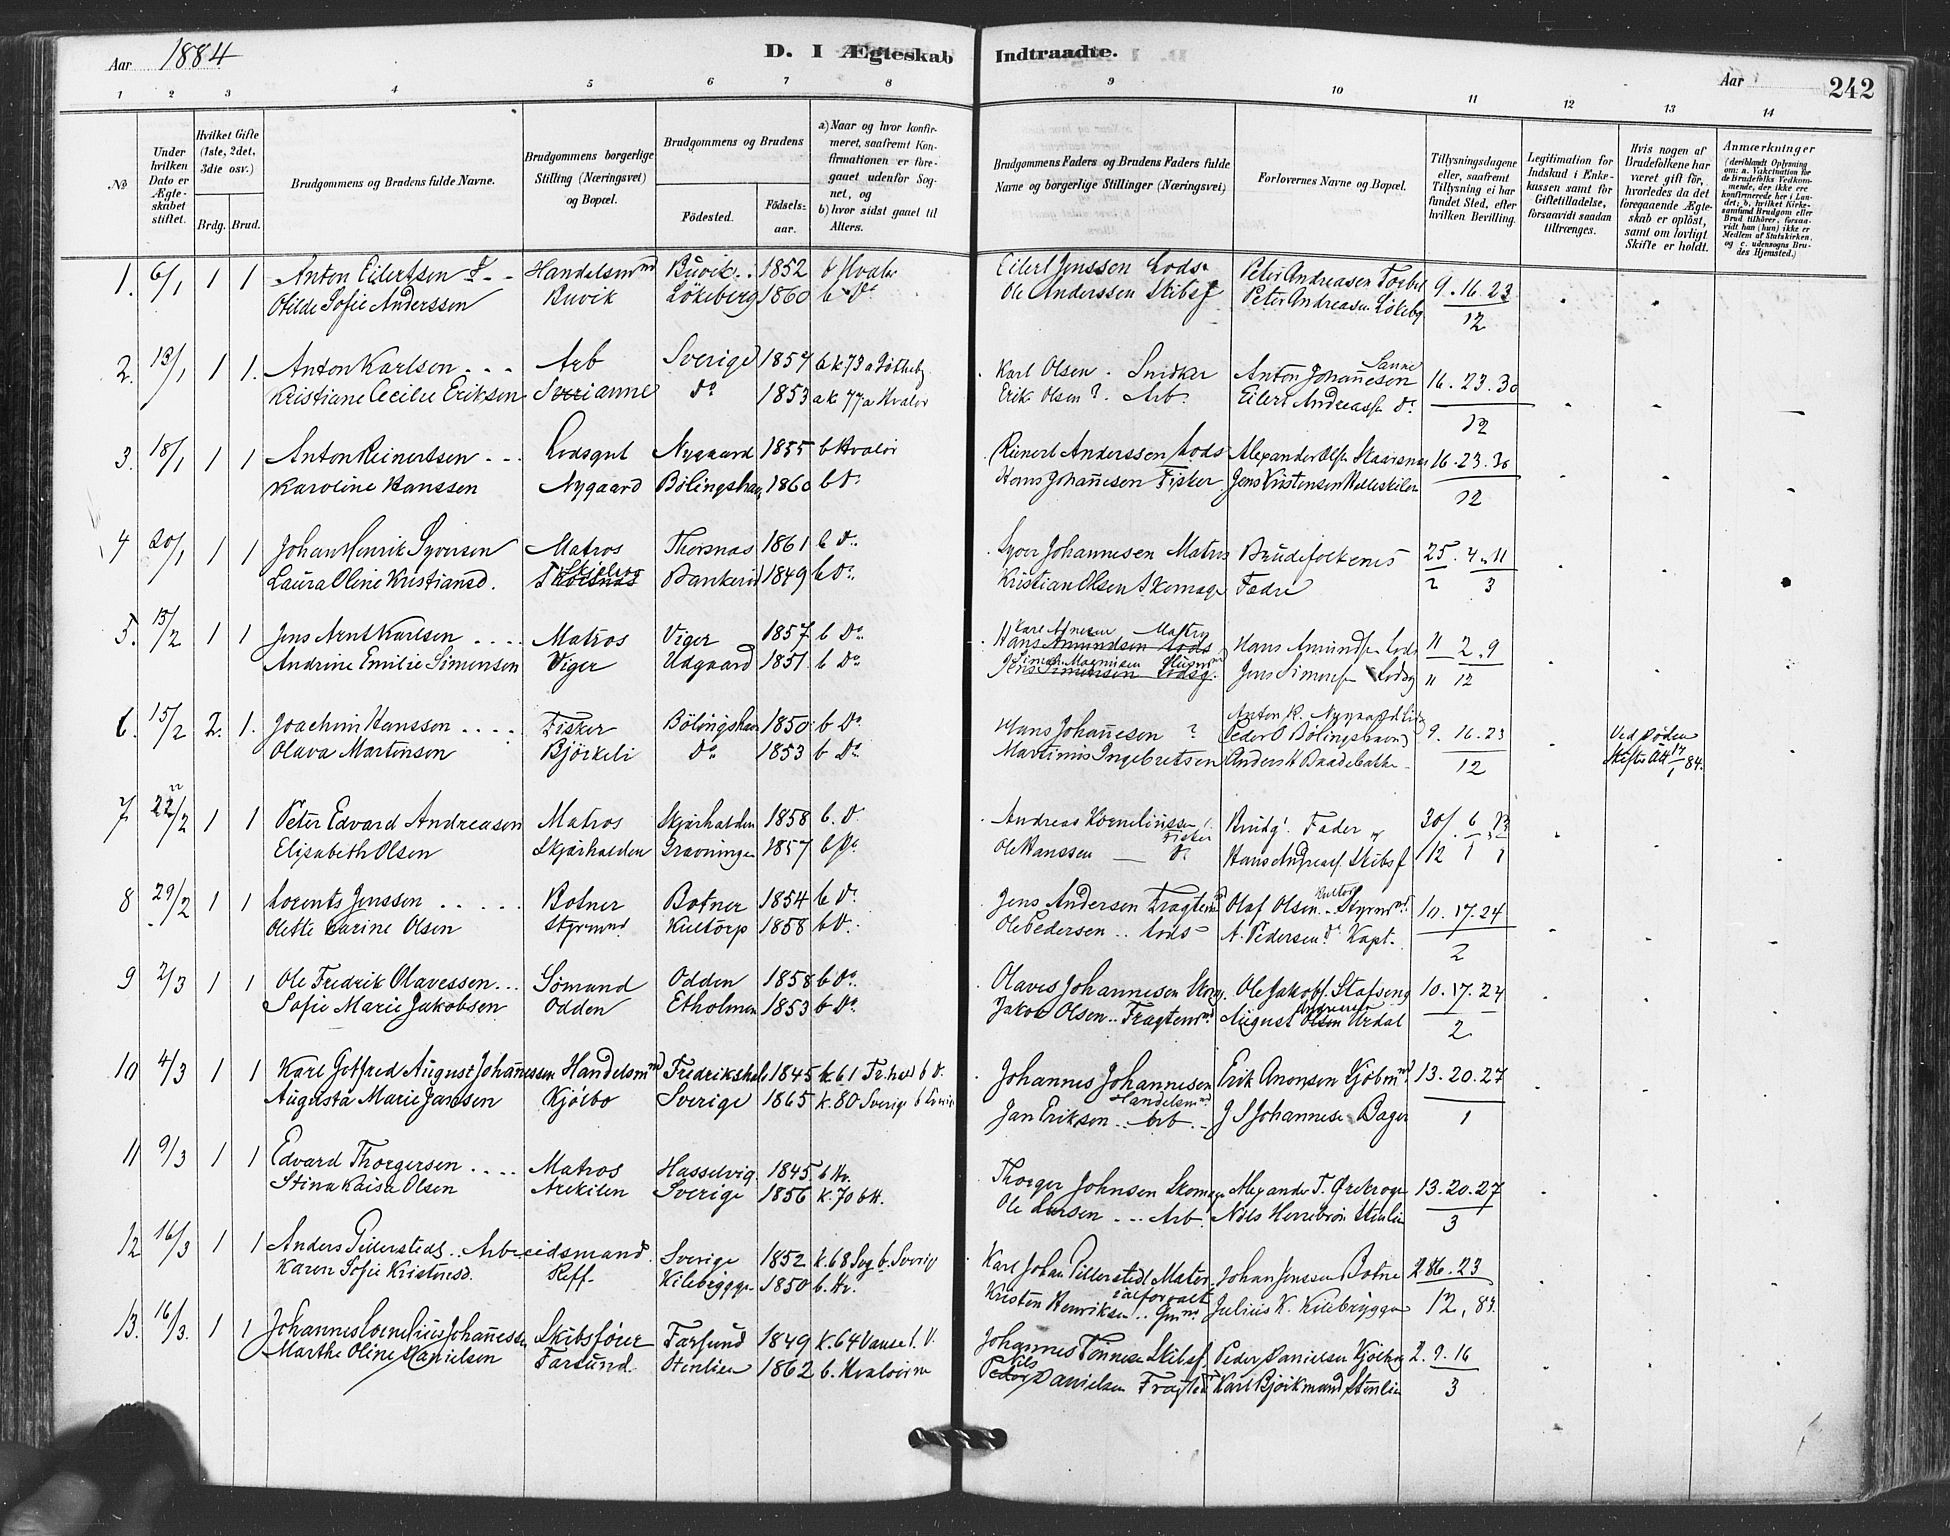 Aar 1884 D. I Ægteskab Indtraadte. Aar 242
1 2 3 4 5 6 7 8 9 10 11 12 13 14
No
Under hvilken Dato er Ægteskabet stiftet.
Hvilket Gifte (1ste, 2det, 3dte osv.)
Brdg. Brud.
Brudgommens og Brudens fulde Navne.
Brudgommens borgerlige Stilling (Næringsvei) og Bopæl.
Brudgommens og Brudens
Födested. Födselsaar.
a) Naar og hvor konfirmeret, saafremt Konfirmationen er foregaaet udenfor Sognet, og
b) hvor sidst gaaet til Alters.
Brudgommens Faders og Brudens Faders fulde Navne og borgerlige Stillinger (Næringsvei)
Forlovernes Navne og Bopæl.
Tillysningsdagene eller, saafremt Tillysning ei har fundet Sted, efter hvilken Bevilling.
Legitimation for Indskud i Enkekassen samt for Giftetilladelse, forsaavidt saadan tiltrænges.
Hvis nogen af Brudefolkene har været gift för, hvorledes da det foregaaende Ægteskab er oplöst, samt om lovligt Skifte er holdt.
Anmærkninger
1. 6/1 1 1 Anton Eilertsen Handelsmnd Buvik 1852 b Hvaler Eilert Jenssen Lods Peter Andreasen 9. 16. 23
Otilde Sofie Anderssen Buvik Lökeberg 1860 b Do Ole Anderssen Skibsf Peter Andreasen Lökebg 12
2. 13/1 1 1. Anton Karlsen Arb Sverige 1857 Karl Olsen Snidker Anton Johannesen Sanne 16. 23. 30
Kristiane Cecilie Eriksen Do 1853 a k 77 a Hvaler Erik Olsen? Arb. Eilert Andreass Do 12
3. 18/1 1 1 Anton Reinertsen Lodsgut Nygaard 1855 b Hvaler Reinert Anderssen Lods Alexander Ols 16. 23. 30
Karoline Hanssen Nygaard Bölingshavn 1860 b D. Hans Johannesen Fisker Jens Kristensen 12
4 20/1 1 1 Johan Henrik Syversen Matros Thorsnas 1861 b Do Syver Johannesen Matros Brudefolkenes 25. 4. 11
Laura Oline Kristiansd. Bankerö 1849 b Do. Kristian Olsen Skomage Fædre 2 3
5. 15/2 1 1 Jens Arnt Karlsen Matros Viger 1857 b Do Karl Hans Amundsen Lods Hans Amunds Lods 11 2. 9
Andrine Emilie Simensen Viger Udgaard 1851. b Do Simen Magnisen Jens Simensen Lodsg. Jens Simens Lodsg 11 12
6. 15/2 2. 1. Joachim Hanssen Fisker Bölingshavn 1850 b Do Hans Johannesen ? Anton R. Nygaard 9. 16. 23 Ved Döden
Olava Martinsen Björkeli Do 1853 b Do Martinus Ingebretsen Peder O Bölingshavn Anders H 12 84.
7 22/2 1 1 Peter Edvard Andreasen Matros Skjærhalden 1858 b. D. Andreas Kornelius Fisker Brudg. Fader og 30/12 6/1 13/1
Elisabeth Olsen Skjærhalden Gravningen 1857 b Do Ole Hanssen Do Hans Andreas. Skibsf
8 29/2 1 1 Lorents Jenssen Botner Botner 1854 b D. Jens Andersen Fragtemd Olaf Olsen Kultorp Styrmd 10. 17. 24
Olette Carine Olsen Styrmnd Kultorp 1858 b D. Ole Pedersen Lods A. Pedersen Do Kapt. 2
9 2/3 1 1 Ole Fredrik Olavessen Sömand Odden 1858 b Do. Olaves Johannesen Ole Jakobs. Stafseng 10. 17. 24
Sofie Marie Jakobsen Odden Etholmen 1853 b Do. Jakob Olsen Fragtemd August Olsen Urdal 2
10 4/3 1 1 Karl Gotfred August Johannessen Handelsmnd Fredrikshald 1845 k. 61 Fr.hald b D. Johannes Johannesen Handelsmd Erik Aronsen Kjöbmd 13. 20. 27
Augusta Marie Jansen Kjölbo Sverige 1865 k. 80 Sverige b Sverige Jan Eriksen Arb J S Johannesen Bager 1
11 9/3 1 1 Edvard Thorgersen Matros Hasselvig 1845 b Hv. Thorger Johnsen Skomage Alexander T. 13. 20. 27
Stina Kaisa Olsen Arekilen Sverige 1856 k. 70 b H. Ole Larsen Arb. Nils Herrebröe Stenlie 3
12 16/3 1 1 Anders Pillerstedt Arbeidsmand Sverige 1852 k. 68 Svg b. Sverige Karl Johan Pillerstedt Materialforvalt Johan Jenssen Botne 2 16. 23
Karen Sofie Kristensd. Reff Kilebrygge 1850 b. Hv. Kristen Henriksen Gmd Julius K. Kilebrygge 12, 83.
13. 16/3. 1 1 Johannes Cornelius Johannessen Skibsförer Farsund 1849 k. 64 Vanse b. D. Johannes Tönnesen Skibsf. Peder Danielsen Kjölbo 2. 9. 16
Marthe Oline Danielsen Farsund Stenlien 1862 b. Hvalöerne Nils Peder Danielsen Fragtemd Karl Björkmand, Stenlie 3